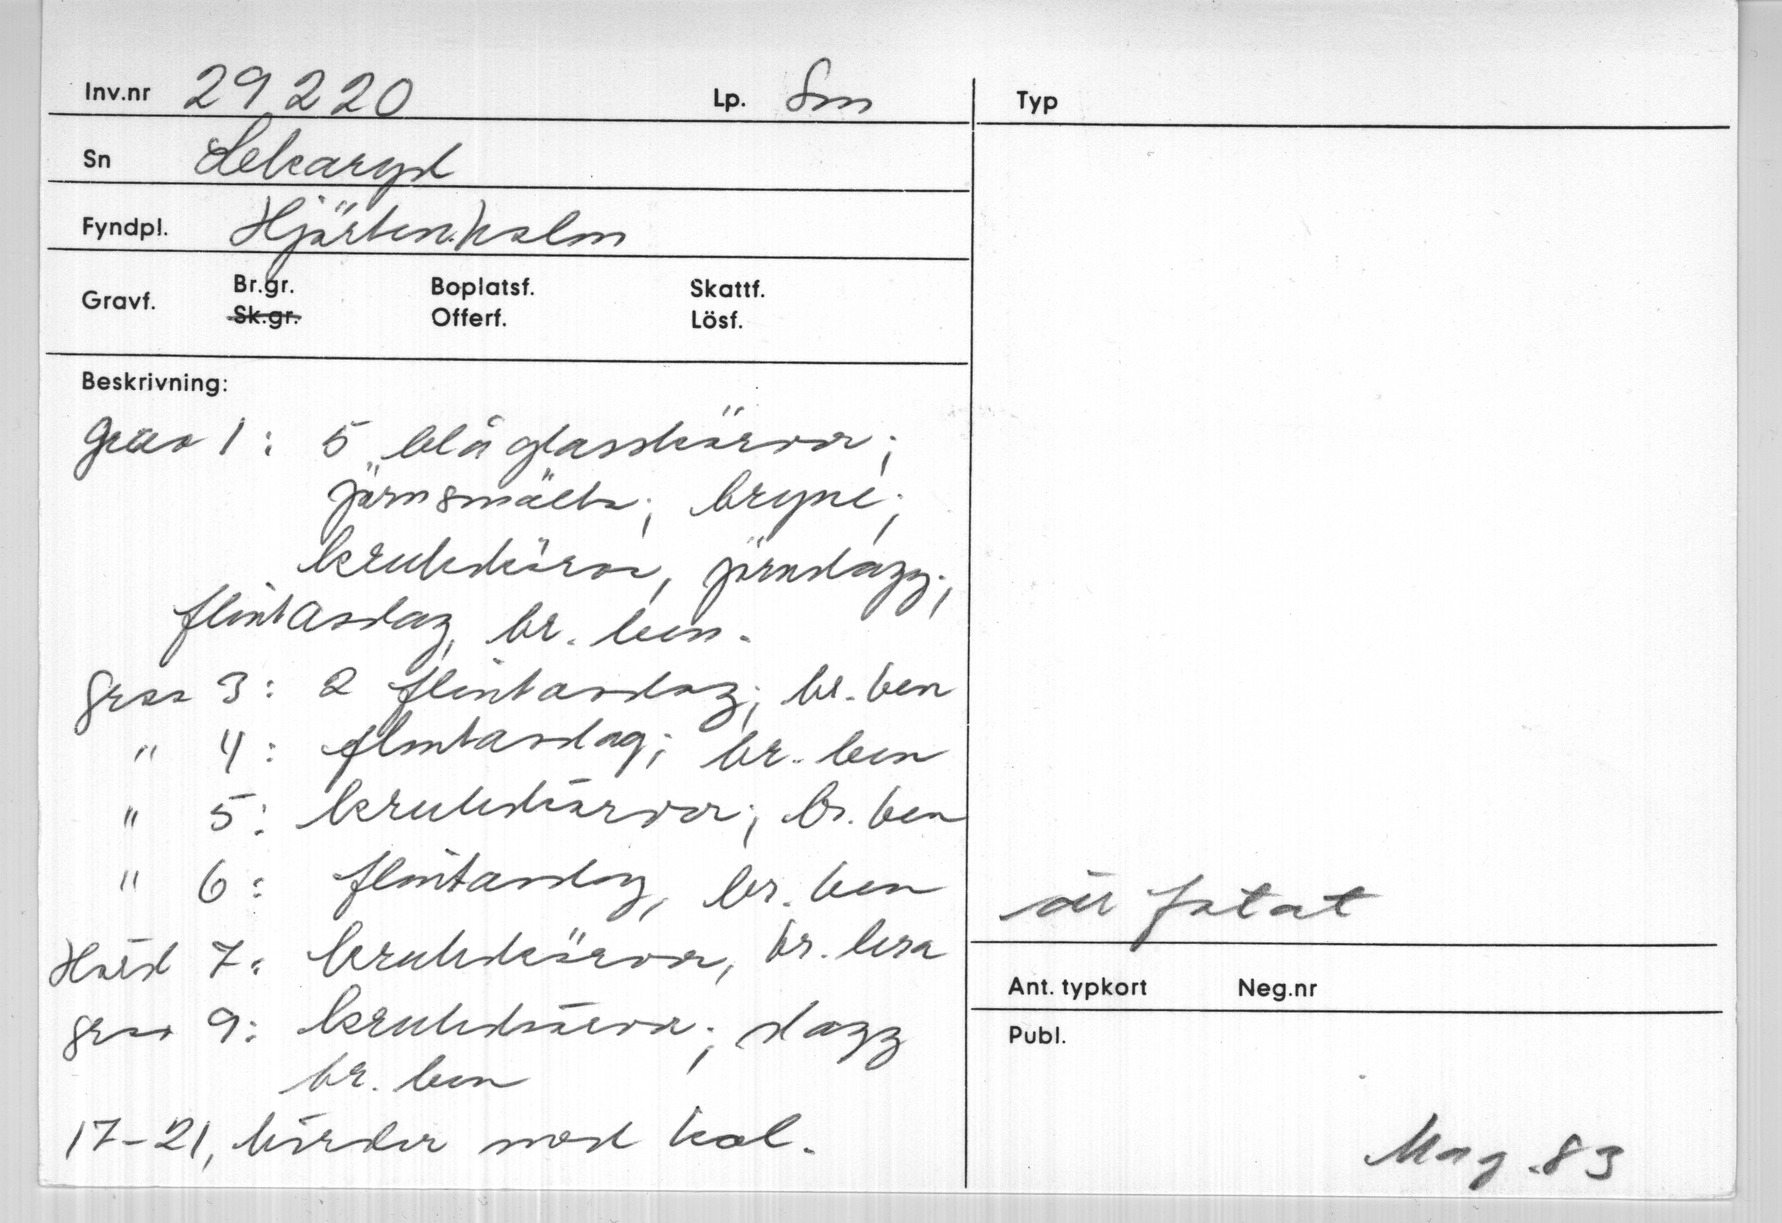 Inv.nr 29220 Lp. Sm
Sn Lekaryd
Fyndpl. Hjärtenholm
Gravf. Br.gr. Boplatsf. Skattf.
Sk.gr. Offerf. Lösf.
Beskrivning:
grav 1: 5 blå glasskärvor;
järnsmälta; bryne;
krukskärva, järnslagg;
flintavslag, br. ben.
grav 3: 2 flintavslag; br. ben
" 4: flintavslag; br. ben
" 5: krukskärvor; br. ben
" 6: flintavslag, br. ben
Härd 7: krukskärvor, br. lera
grav 9: krukskärvor; slagg
br. ben
17-21, härdar med kol.
Typ
är fotat
Ant. typkort Neg.nr
Publ.
Mag. 83